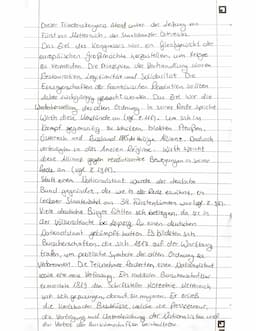 Dieser Friedenskongress stand unter der Leitung von
Fürst von Metternich, der Außenminister Österreichs.
Das Ziel des Kongresses war ein Gleichgewicht der
europäischen Großmächte herzustellen um Kriege
zu vermeiden. Die Prinzipien der Verhandlung waren
Restauration, Legitimität und Solidarität. Die
Errungenschaften der Französischen Revolution sollten
rückgängig gemacht werden. Das Ziel war die
Wiederherstellung der alten Ordnung. In seiner Rede spricht
Wirth diese Umstände an (vgl. Z.
Kampf gegenseitig zu schützen, bildeten Preußen,
Österreich und Russland die Heilige Allianz. Dadurch
verteidigten sie das Ancien Régime. Wirth spricht
diese Allianz gegen revolutionäre Bewegungen in seiner
Rede an (vgl. Z.
Statt einem Nationalstaat wurde der deutsche
Bund gegründet, der wie in der Rede erwähnt, ein
lockerer Staatenbund aus 34 Fürstentümern war (vgl. Z.
Viele deutsche Bürger fühlten sich betrogen, da sie in
der Völkerschlacht bei Leipzig für einen deutschen
Nationalstaat gekämpft hatten. Es bildeten sich
Burschenschaften, die sich 1817 auf der Wartburg
trafen, um politische Symbole der alten Ordnung zu
verbrennen. Die Teilnehmer forderten einen Nationalstaat
sowie eine neue Verfassung. Ein radikaler Burschenschaftler
ermordete 1819 den Schriftsteller Kotzebue. Metternich
sah sich gezwungen, darauf zu reagieren. Er erließ
die Karlsbader Beschlüsse, welche die Pressezensur,
die Verfolgung und Überwachung der Nationalisten und
das Verbot der Burschenschaften beinhalteten.